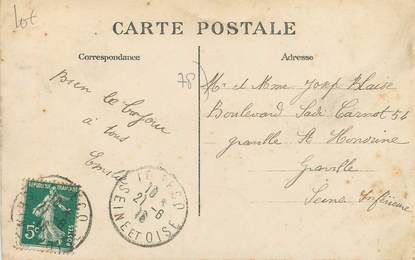 Lot
CARTE POSTALE
Correspondance
Adresse
78
Bien le bonjour
à tous
Emile
Mr et Mme Josep Blaise
Boulevard Sadi Carnot 54
graville St Honorine
Graville
Seine Inférieure
LE PECQ
10
21 - 6
SEINE ET OISE
REPUBLIQUE FRANÇAISE
5c
POSTES